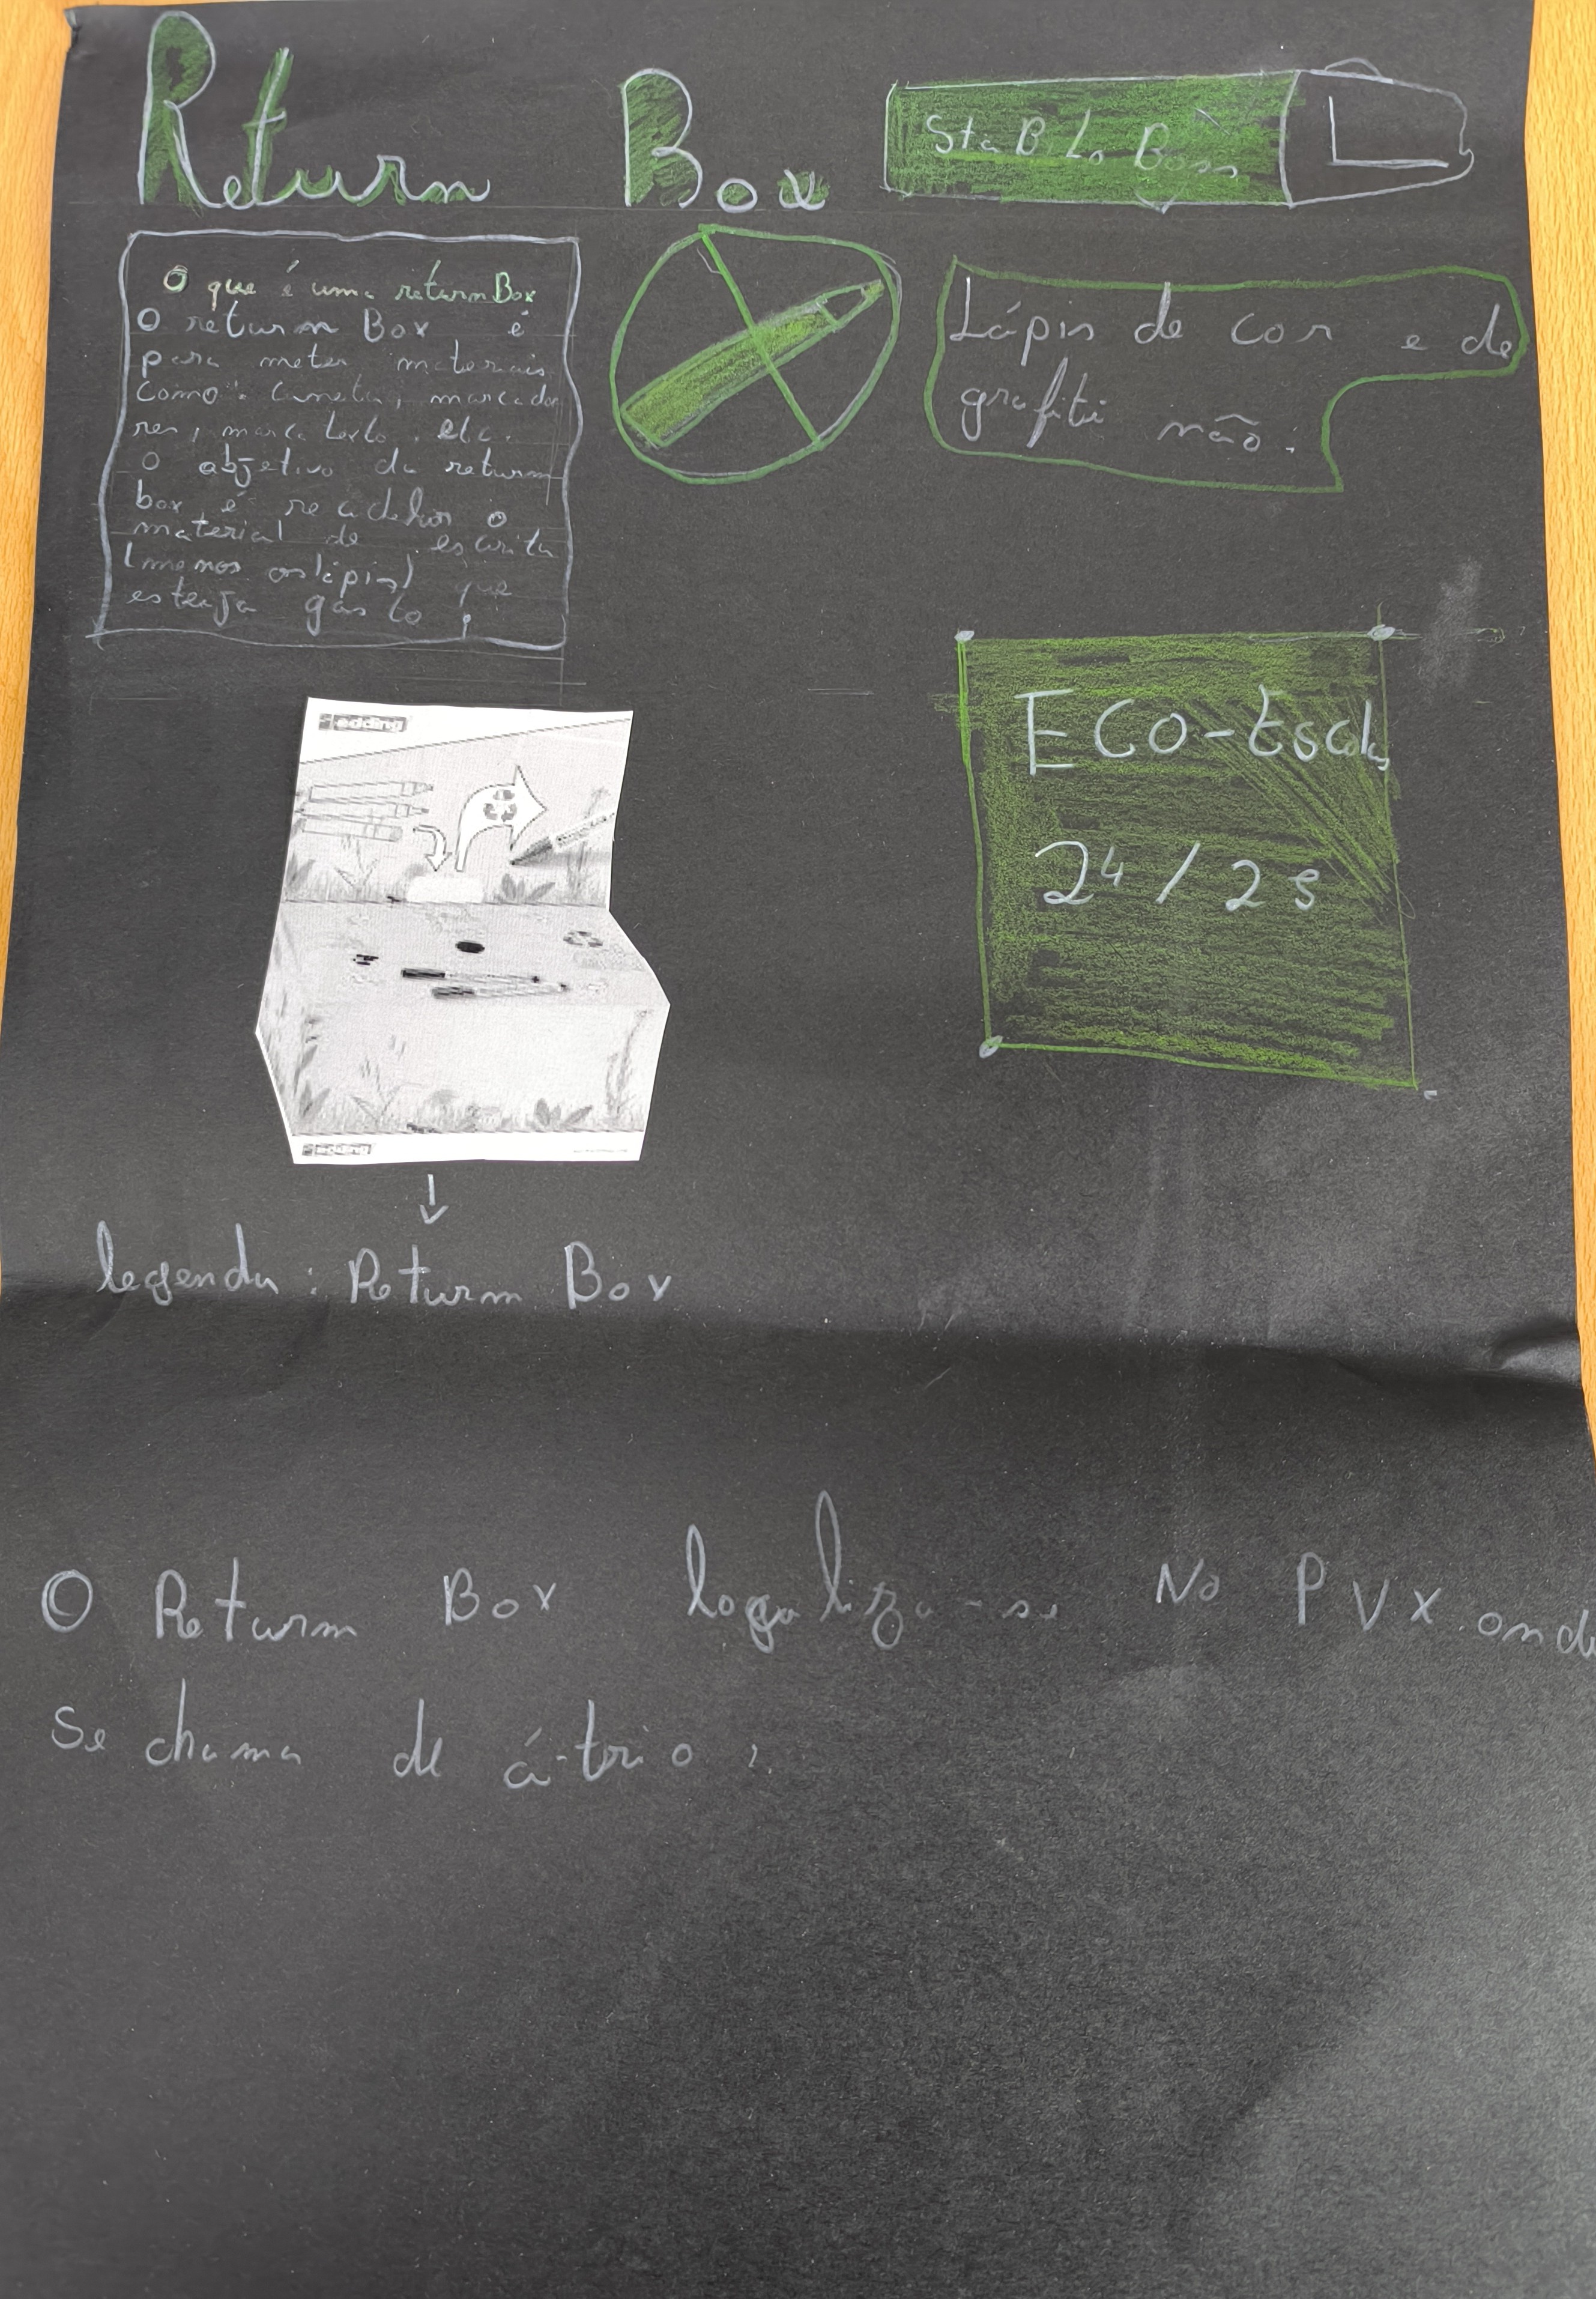 Return Box
StaBiLo Boss
O que é uma return Box
O return Box é
para meter materiais
como: caneta, marcado
res, marca texto, etc.
O objetivo da return
box é
material de escrita
(menos os lápis) que
esteja gasto!
Lápis de cor e de
grafiti não!
edding
ECO-Escolas
24/25
edding
legenda: Return Box
O Return Box logaliza-se No PVX onde
se chama de á-trio!